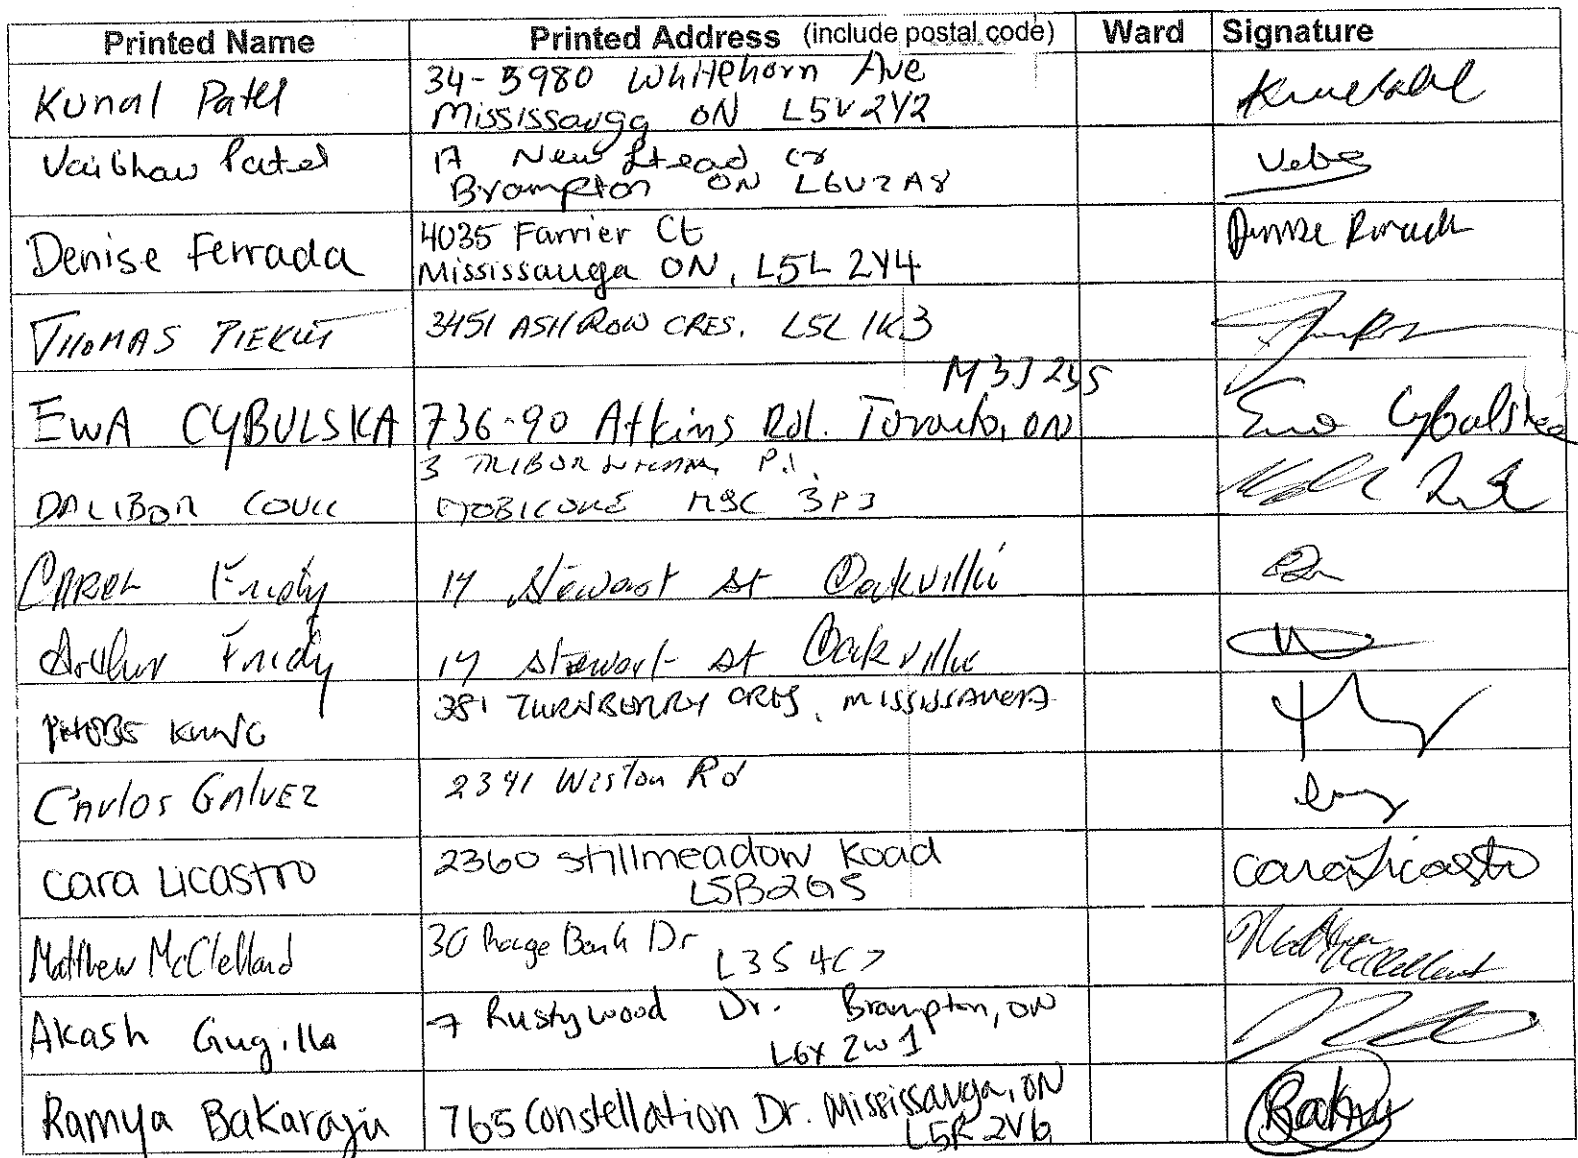 Printed Name Printed Address (include postal code) Ward Signature
Kunal Patel 34-5980 Whitehorn Ave
Mississauga ON L5V2Y2
Vaibhav Patel 17 New stead cr
Brampton ON L6V2A8
Denise Ferrada 4035 Farrier Ct
Mississauga ON, L5L 2Y4
THOMAS PIEKUT 3451 ASHROW CRES. L5L 1K3
M3J 2S5
EWA CYBULSKA 736-90 Atkins Rd. Toronto, ON Ewa Cybulska
3 P.L.
DALIBOR M9C 3P3
CAROL 14 Stewart St Oakville
Arthur 14 Stewart St Oakville
381 TURNBERRY CRES, MISSISSAUGA
PHOBE KUNG
Carlos GALVEZ 2341 Weston Rd
Cara Licastro 2360 Stillmeadow Road Cara Licastro
L5B2G5
Matthew McClelland 30 Bank Dr Matthew McClelland
L3S 4C7
Akash Gugilla 7 Rustywood Dr. Brampton, ON
L6Y 2W1
Ramya Bakaraju 765 Constellation Dr. Mississauga, ON
L5R 2V6